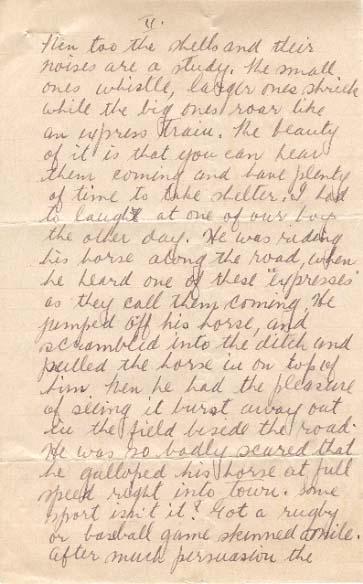 II.
Then too the shells and their
noises are a study. The small
ones whistle, larger ones shriek
while the big ones roar like
an express train. The beauty
of it is that you can hear
them coming and have plenty
of time to take shelter. I had
to laugh at one of our boys
the other day. He was riding
his horse along the road, when
he heard one of these "expresses"
as they call them coming. He
jumped off his horse, and
scrambled into the ditch and
pulled the horse in on top of
him. Then he had the pleasure
of seeing it burst away out
in the field beside the road.
He was so badly scared that
he galloped his horse at full
speed right into town. Some
sport isn't it? Got a rugby
or baseball game skinned a mile.
After much persuasion the